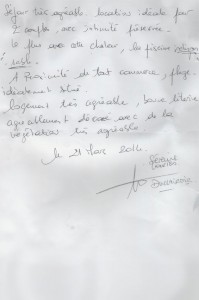 Séjour très agréable. Location idéale pour
2 couples, avec intimité préservée.
Le plus avec cette chaleur, la piscine
A Proximité de tout commerce, plage.
idéalement situé.
Logement très agréable, bonne literie
agréablement décoré avec de la
végétation très agréable
le 21 2014.